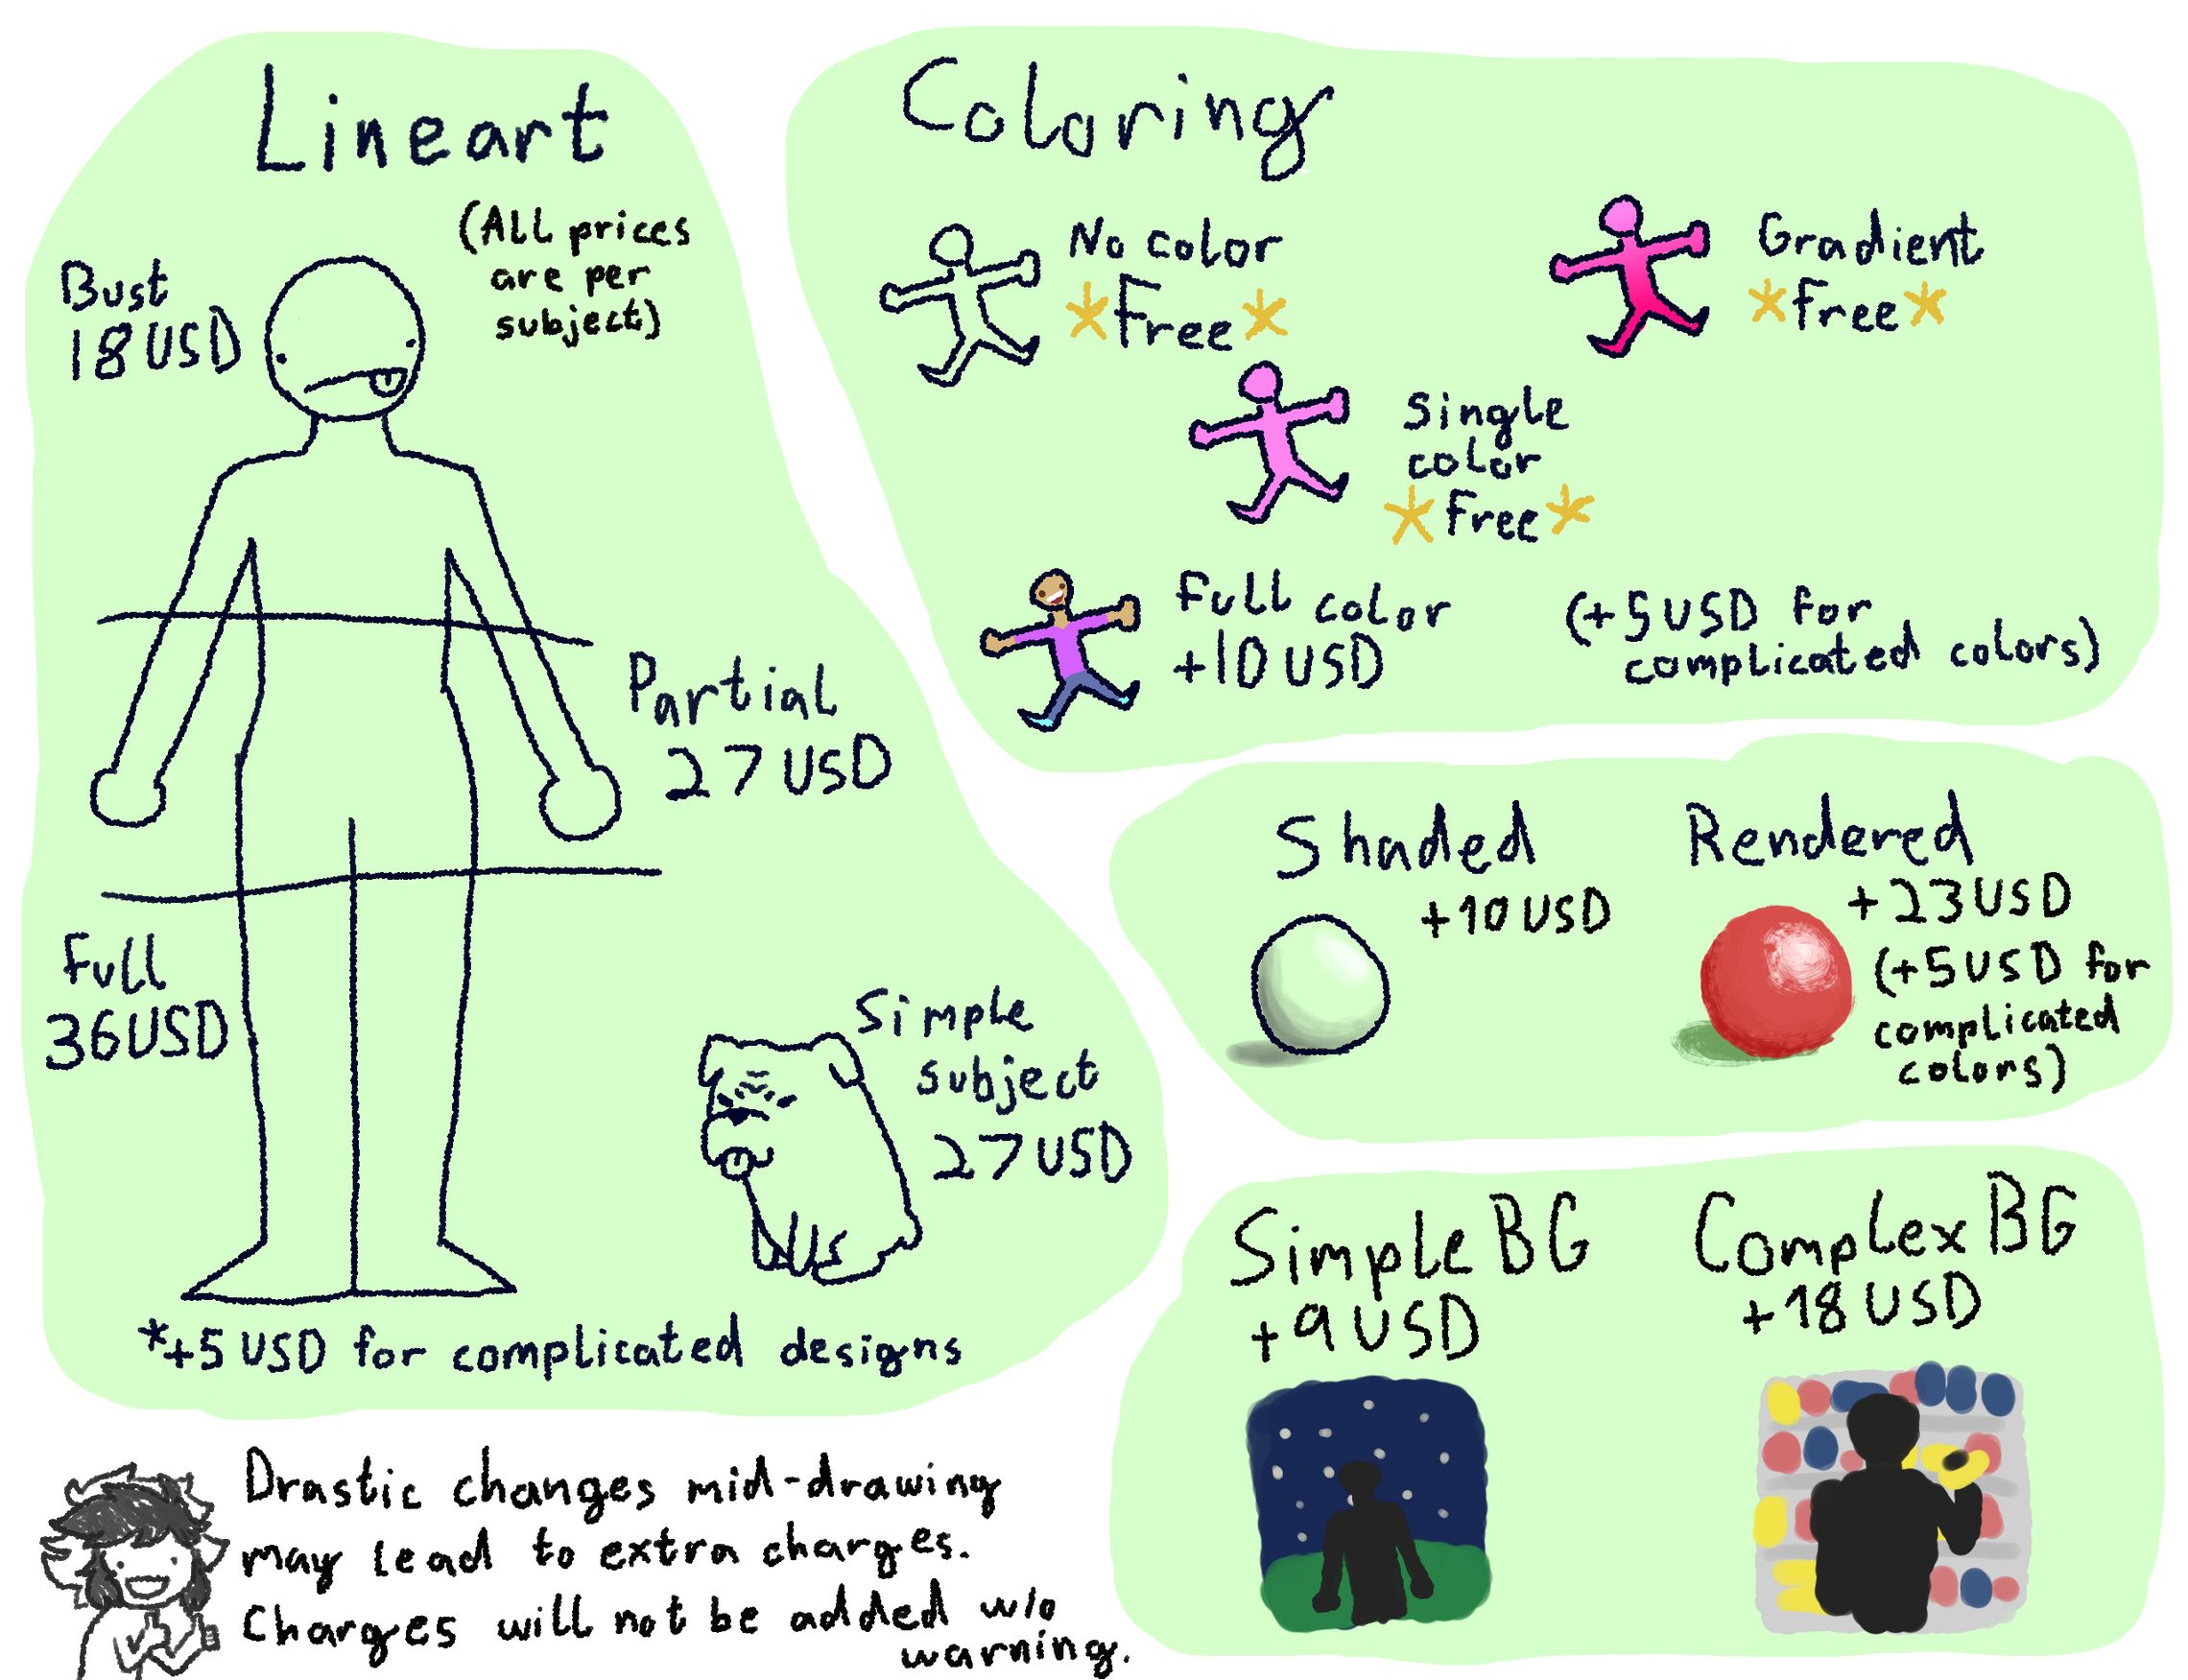 Lineart
(All prices
are per
subject)
Bust
18 USD
Partial
27 USD
Full
36 USD
Simple
subject
27 USD
*+5 USD for complicated designs
Coloring
No color
*Free*
Gradient
*Free*
Single
color
*Free*
Full color
+10 USD
(+5 USD for
complicated colors)
Shaded
+10 USD
Rendered
+23 USD
(+5 USD for
complicated
colors)
Simple BG
+9 USD
Complex BG
+18 USD
Drastic changes mid-drawing
may lead to extra charges.
Charges will not be added w/o
warning.